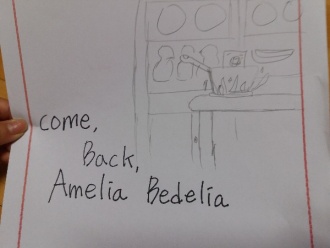 come,
Back,
Amelia Bedelia